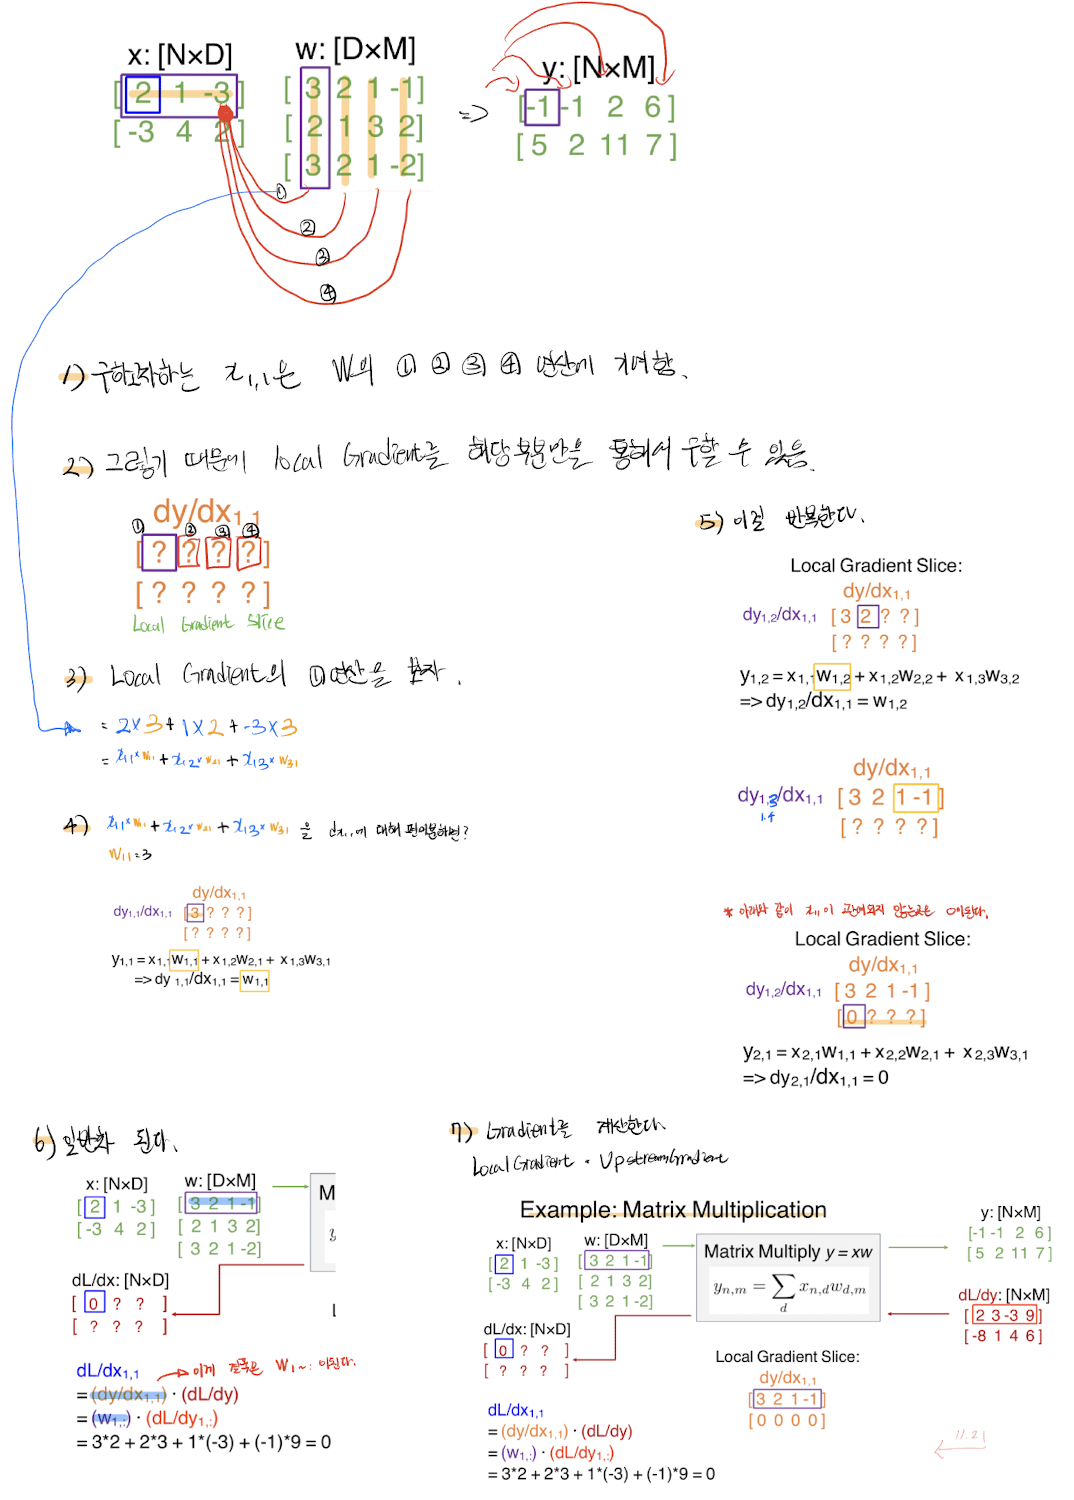 x: [N×D]
w: [D×M]
y: [N×M]
[ 2 1 -3 ]
[ -3 4 2 ]
[ 3 2 1 -1]
[ 2 1 3 2]
[ 3 2 1 -2]
=>
[ -1 -1 2 6 ]
[ 5 2 11 7 ]
①
②
③
④
1) 구하고자하는 x1,1은 W의 ① ② ③ ④ 연산에 기여함.
2) 그렇기 때문에 local Gradient를 해당 부분만을 통해서 구할 수 있음.
dy/dx1,1
① ② ③ ④
[ ? ? ? ? ]
[ ? ? ? ? ]
Local Gradient Slice
3) Local Gradient의 ①연산을 보자.
= 2×3+1×2+-3×3
= x11×w11+x12×w21+x13×w31
4) x11×w11+x12×w21+x13×w31 을 dx1,1에 대해 편미분하면?
W11=3
dy/dx1,1
dy1,1/dx1,1 [ 3 ? ? ? ]
[ ? ? ? ? ]
y1,1 = x1,1w1,1 + x1,2w2,1 + x1,3w3,1
=> dy 1,1/dx1,1 = w1,1
5) 이걸 반복한다.
Local Gradient Slice:
dy/dx1,1
dy1,2/dx1,1 [ 3 2 ? ? ]
[ ? ? ? ? ]
y1,2 = x1,1w1,2 + x1,2w2,2 + x1,3w3,2
=> dy1,2/dx1,1 = w1,2
dy/dx1,1
dy1,3/dx1,1 [ 3 2 1 -1 ]
1,4
[ ? ? ? ? ]
* 아래와 같이 x11이 관여되지 않는곳은 0이된다.
Local Gradient Slice:
dy/dx1,1
dy1,2/dx1,1 [ 3 2 1 -1 ]
[ 0 ? ? ? ]
y2,1 = x2,1w1,1 + x2,2w2,1 + x2,3w3,1
=> dy2,1/dx1,1 = 0
6) 일반화 된다.
x: [N×D]
[ 2 1 -3 ]
[ -3 4 2 ]
w: [D×M]
[ 3 2 1 -1]
[ 2 1 3 2]
[ 3 2 1 -2]
M
y
L
dL/dx: [N×D]
[ 0 ? ? ]
[ ? ? ? ]
dL/dx1,1
이게 결국은 W1~: 이된다.
= (dy/dx1,1) · (dL/dy)
= (w1,:) · (dL/dy1,:)
= 3*2 + 2*3 + 1*(-3) + (-1)*9 = 0
7) Gradient를 계산한다
Local Gradient · Upstream Gradient
Example: Matrix Multiplication
x: [N×D]
[ 2 1 -3 ]
[ -3 4 2 ]
w: [D×M]
[ 3 2 1 -1]
[ 2 1 3 2]
[ 3 2 1 -2]
Matrix Multiply y = xw
yn,m = ∑d xn,dwd,m
y: [N×M]
[-1 -1 2 6 ]
[ 5 2 11 7 ]
dL/dy: [N×M]
[ 2 3 -3 9 ]
[ -8 1 4 6 ]
dL/dx: [N×D]
[ 0 ? ? ]
[ ? ? ? ]
Local Gradient Slice:
dy/dx1,1
[ 3 2 1 -1 ]
[ 0 0 0 0 ]
dL/dx1,1
= (dy/dx1,1) · (dL/dy)
= (w1,:) · (dL/dy1,:)
= 3*2 + 2*3 + 1*(-3) + (-1)*9 = 0
11.21